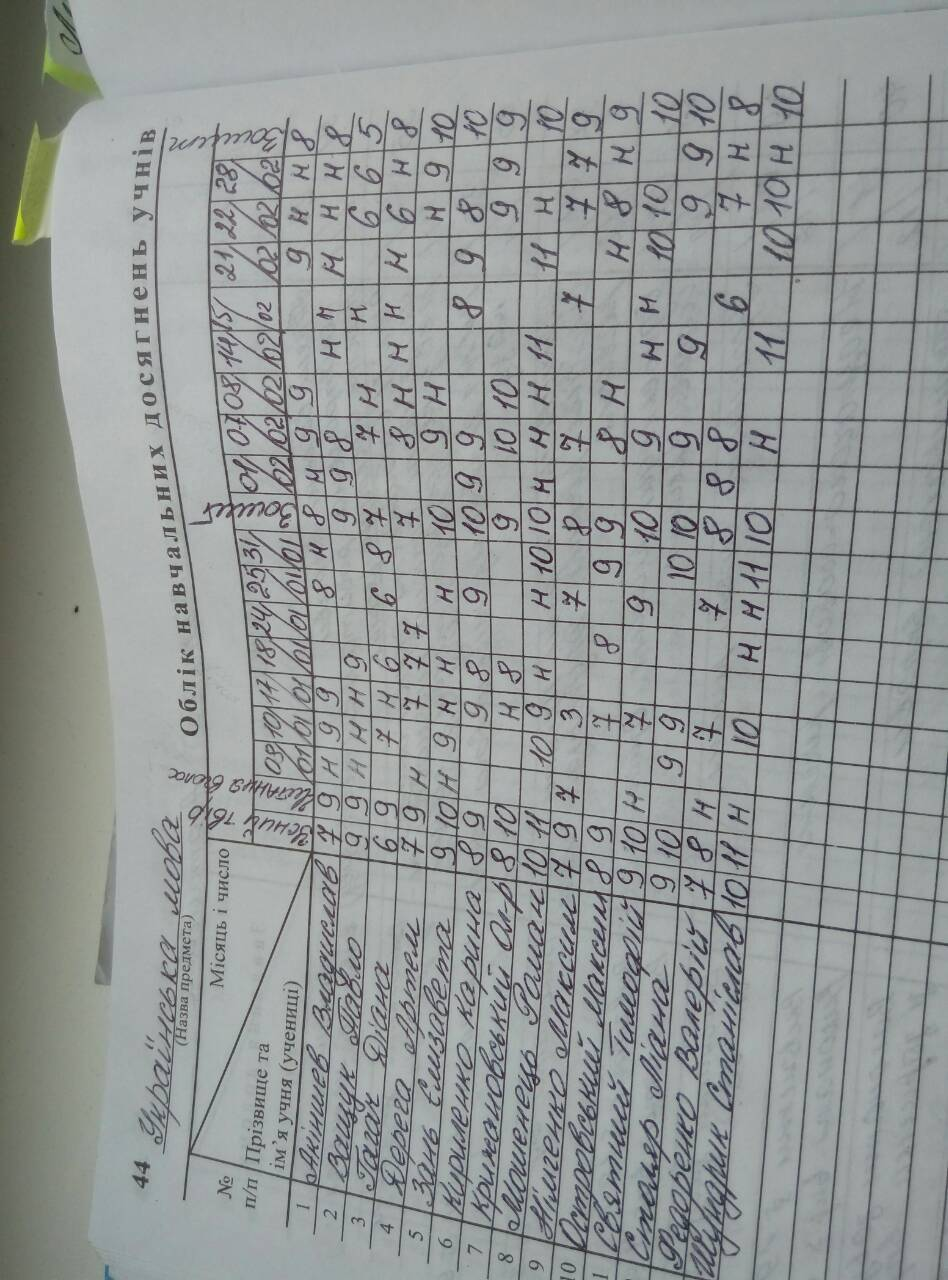 44 Українська мова
(Назва предмета)
Облік навчальних досягнень учнів
№ п/п
Прізвище та
ім'я учня (учениці)
Місяць і число
Усний твір Читання вголос 03/01 10/01 17/01 18/01 24/01 25/01 31/01 Зошит 01/02 07/02 08/02 14/02 15/02 21/02 22/02 28/02 Зошит
1 Акіншев Владислав 7 9 н 9 9 8 н 8 н 9 9 9 н н 8
2 Ващук Павло 9 9 н н н 9 9 9 8 н н н н н 8
3 Гагач Діана 6 9 7 н 6 6 8 7 7 н н 6 6 5
4 Дерега Артем 7 9 н 7 7 7 7 8 н н н н 6 н 8
5 Зань Єлизавета 9 10 н 9 н н н 10 9 н н 9 10
6 Кириленко Карина 8 9 9 8 9 10 9 9 8 9 8 10
7 Крижановський Ол-р 8 10 н 8 9 10 10 9 9 9
8 Мошенець Роман 10 11 10 9 н н 10 10 н н н 11 11 н 10
9 Німченко Максим 7 9 7 3 7 8 7 7 7 7 9
10 Островський Максим 8 9 7 8 9 9 8 н н 8 н 9
1 Святний Тимофій 9 10 н 7 9 10 9 н н 10 10 10
Столяр Ліана 9 10 9 9 10 10 9 9 9 9 10
Федоренко Валерій 7 8 н 7 7 8 8 8 6 7 н 8
Шундрик Станіслав 10 11 н 10 н н 11 10 н 11 10 10 н 10